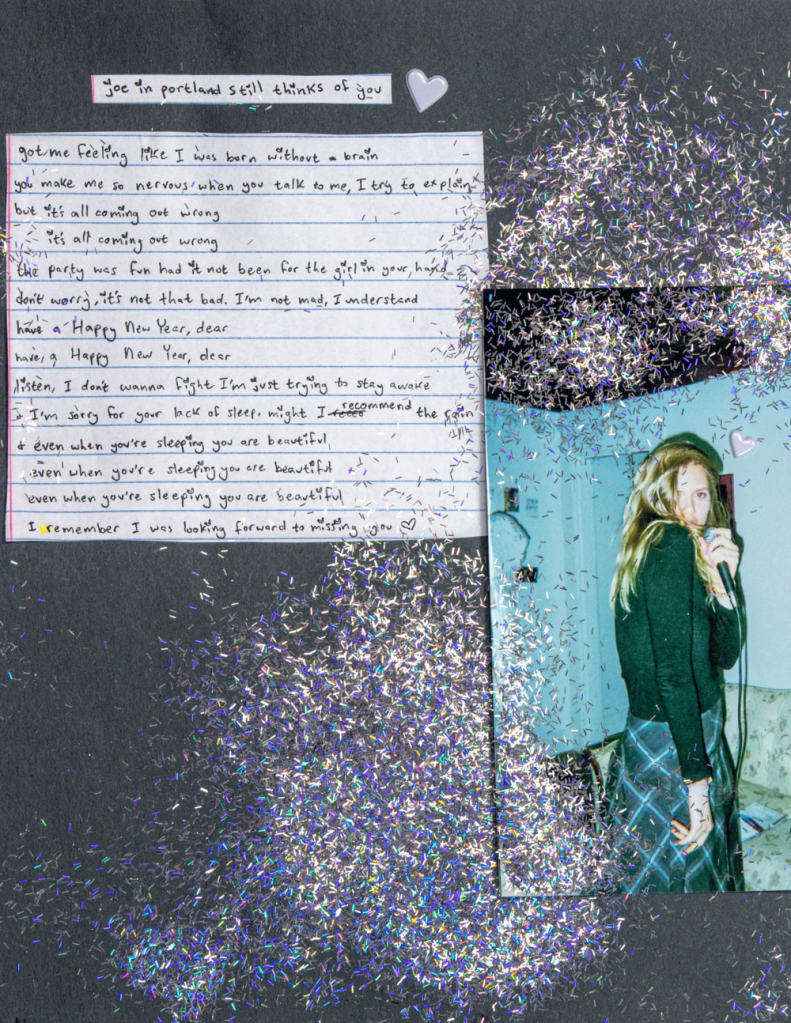 joe in portland still thinks of you
got me feeling like I was born without a brain
you make me so nervous when you talk to me, I try to explain
but it's all coming out wrong
it's all coming out wrong
the party was fun had it not been for the girl in your hand
don't worry, it's not that bad. I'm not mad, I understand
have a Happy New Year, dear
have a Happy New Year, dear
listen, I don't wanna fight I'm just trying to stay awake
& I'm sorry for your lack of sleep. might I recommend the rain
& even when you're sleeping you are beautiful
even when you're sleeping you are beautiful
even when you're sleeping you are beautiful
I remember I was looking forward to missing you ♡